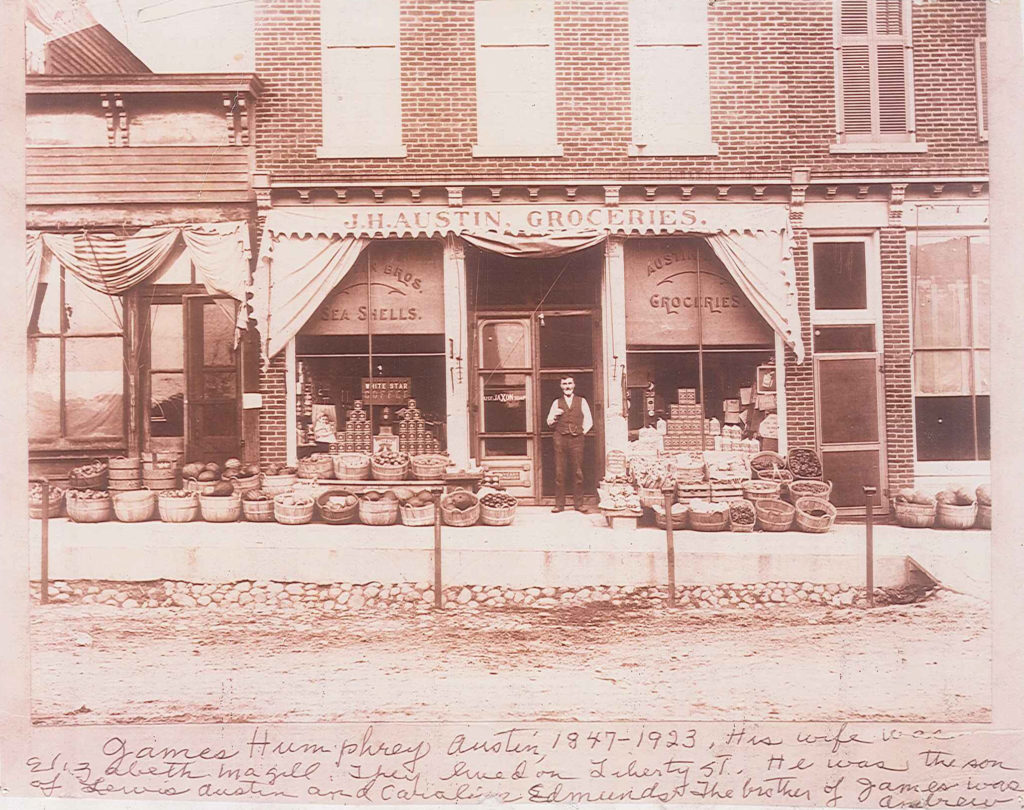 J.H. AUSTIN, GROCERIES.
BROS.
SEA SHELLS.
AUSTIN
GROCERIES
WHITE STAR
COFFEE
JAXON SOAP
James Humphrey Austin, 1847-1923, His wife was
Elizabeth Magill. They lived on Liberty St. He was the son
of Lewis Austin and Caroline Edmunds & The brother of James was